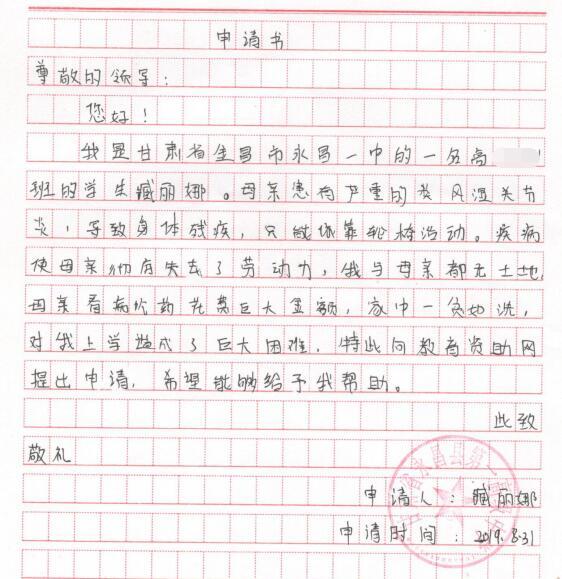 申请书
尊敬的领导：
您好！
我是甘肃省金昌市永昌一中的一名高
班的学生臧丽娜。母亲患有严重的类风湿关节
炎，导致身体残疾，只能依靠轮椅活动。疾病
使母亲彻底失去了劳动力，我与母亲都无土地，
母亲看病吃药花费巨大金额，家中一贫如洗，
对我上学造成了巨大困难，特此向教育资助网
提出申请，希望能够给予我帮助。
此致
敬礼
申请人：臧丽娜
申请时间：2019.8.31
省永昌县第